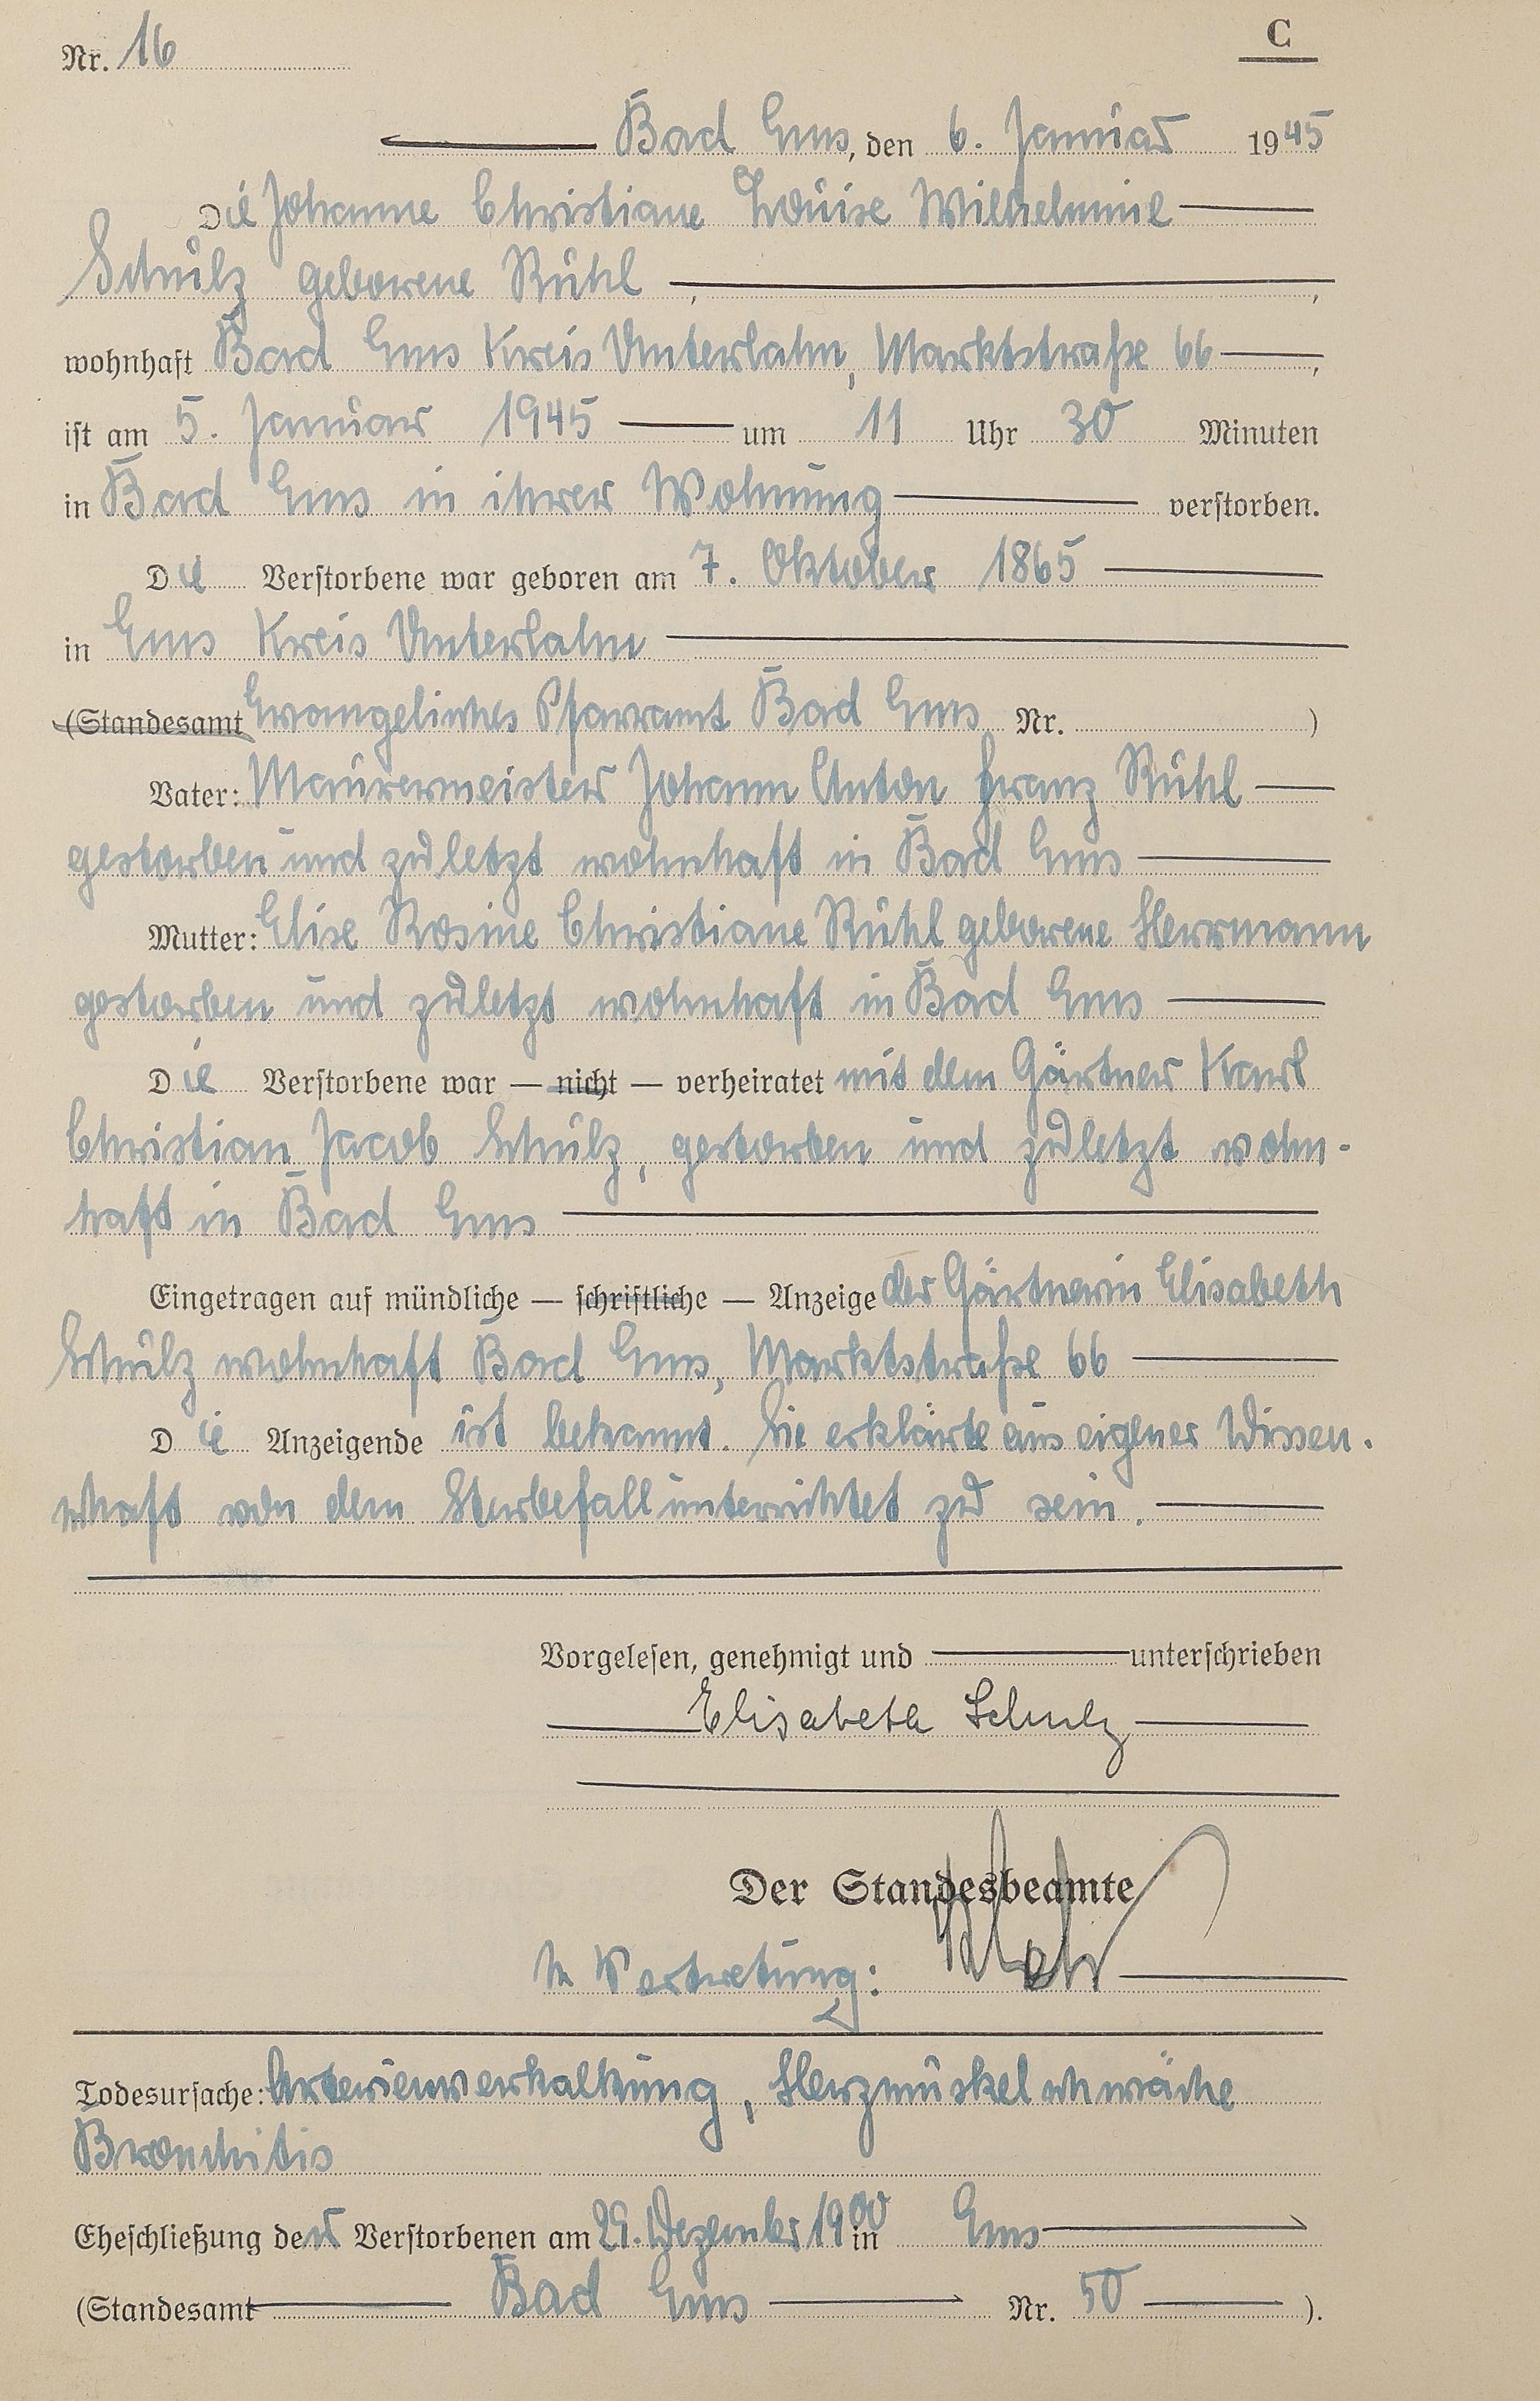 Nr. 16
C
Bad Ems, den 6. Januar 1945
Die Johanne Christiane Louise Wilhelmine
Schulz geborene Rühl,
wohnhaft Bad Ems Kreis Unterlahn, Marktstraße 66,
ist am 5. Januar 1945 um 11 Uhr 30 Minuten
in Bad Ems in ihrer Wohnung verstorben.
Die Verstorbene war geboren am 7. Oktober 1865
in Ems Kreis Unterlahn
(Standesamt Evangelisches Pfarramt Bad Ems Nr. )
Vater: Maurermeister Johann Anton Franz Rühl
gestorben und zuletzt wohnhaft in Bad Ems
Mutter: Elise Rosine Christiane Rühl geborene Herrmann
gestorben und zuletzt wohnhaft in Bad Ems
Die Verstorbene war — nicht — verheiratet mit dem Gärtner Karl
Christian Jacob Schulz, gestorben und zuletzt wohn-
haft in Bad Ems
Eingetragen auf mündliche — schriftliche — Anzeige der Gärtnerin Elisabeth
Schulz wohnhaft Bad Ems, Marktstraße 66
Die Anzeigende ist bekannt. Sie erklärte aus eigener Wissen-
schaft von dem Sterbefall unterrichtet zu sein.
Vorgelesen, genehmigt und unterschrieben
Elisabeth Schulz
Der Standesbeamte
In Vertretung:
Todesursache: Arterienverkalkung, Herzmuskelschwäche
Bronchitis
Eheschließung der Verstorbenen am 29. Dezember 1900 in Ems
(Standesamt Bad Ems Nr. 50 ).